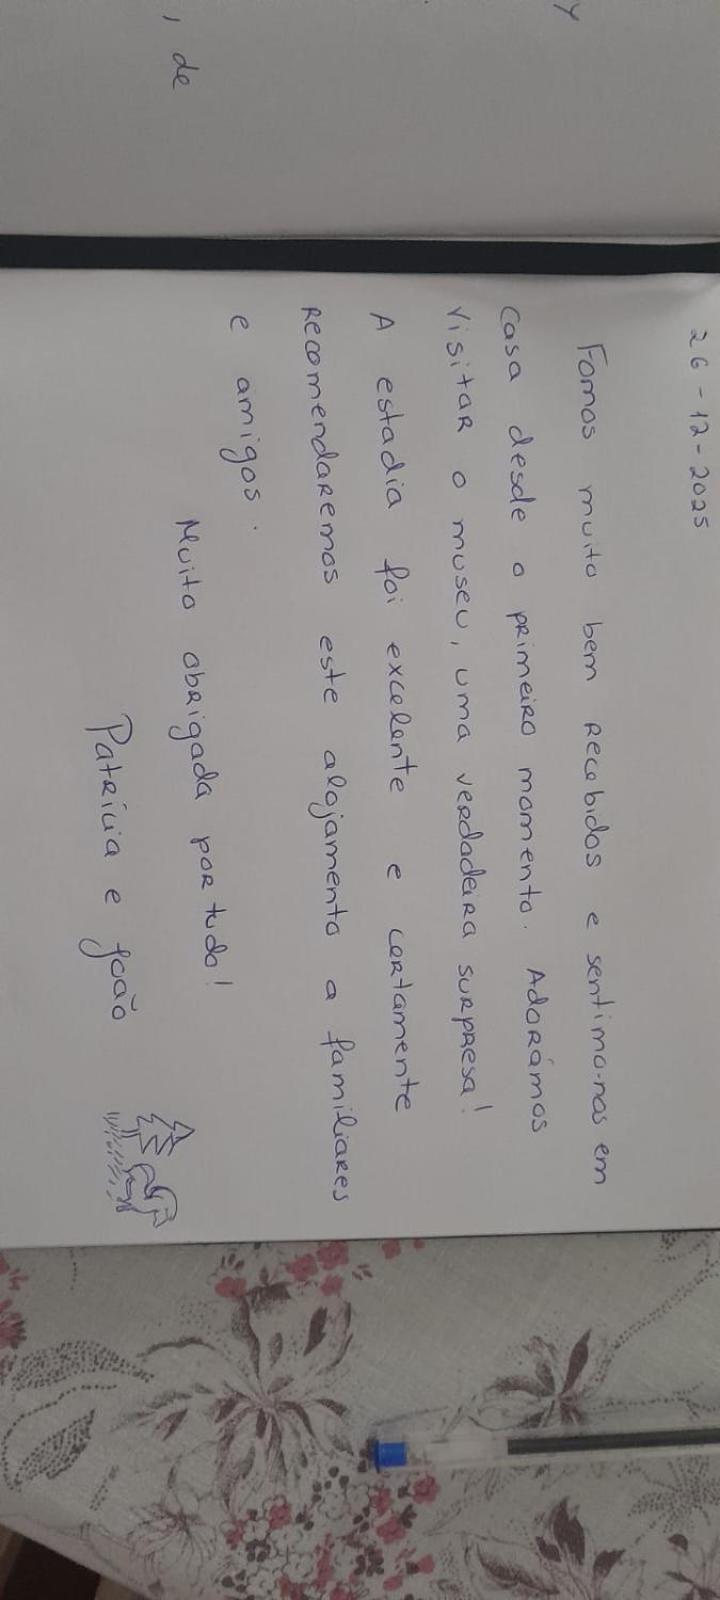 , de
y
26-12-2025
Fomos muito bem recebidos e sentimo-nos em
casa desde o primeiro momento. Adorámos
visitar o museu, uma verdadeira surpresa!
A estadia foi excelente e certamente
recomendaremos este alojamento a familiares
e amigos.
Muito obrigada por tudo!
Patrícia e João